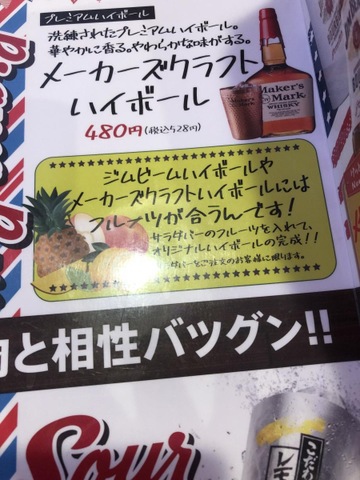 プレミアムハイボール
洗練されたプレミアムハイボール。
華やかに香る。やわらかな味がする。
メーカーズクラフト
ハイボール
480円(税込528円)
Maker's
Mark
WHISKY
ジムビームハイボールや
メーカーズクラフトハイボールには
フルーツが合うんです!
サラダバーのフルーツを入れて、
オリジナルハイボールの完成!!
ダバーをご注文のお客様に限ります。
肉と相性バツグン!!
Sour
こだわ
レモ